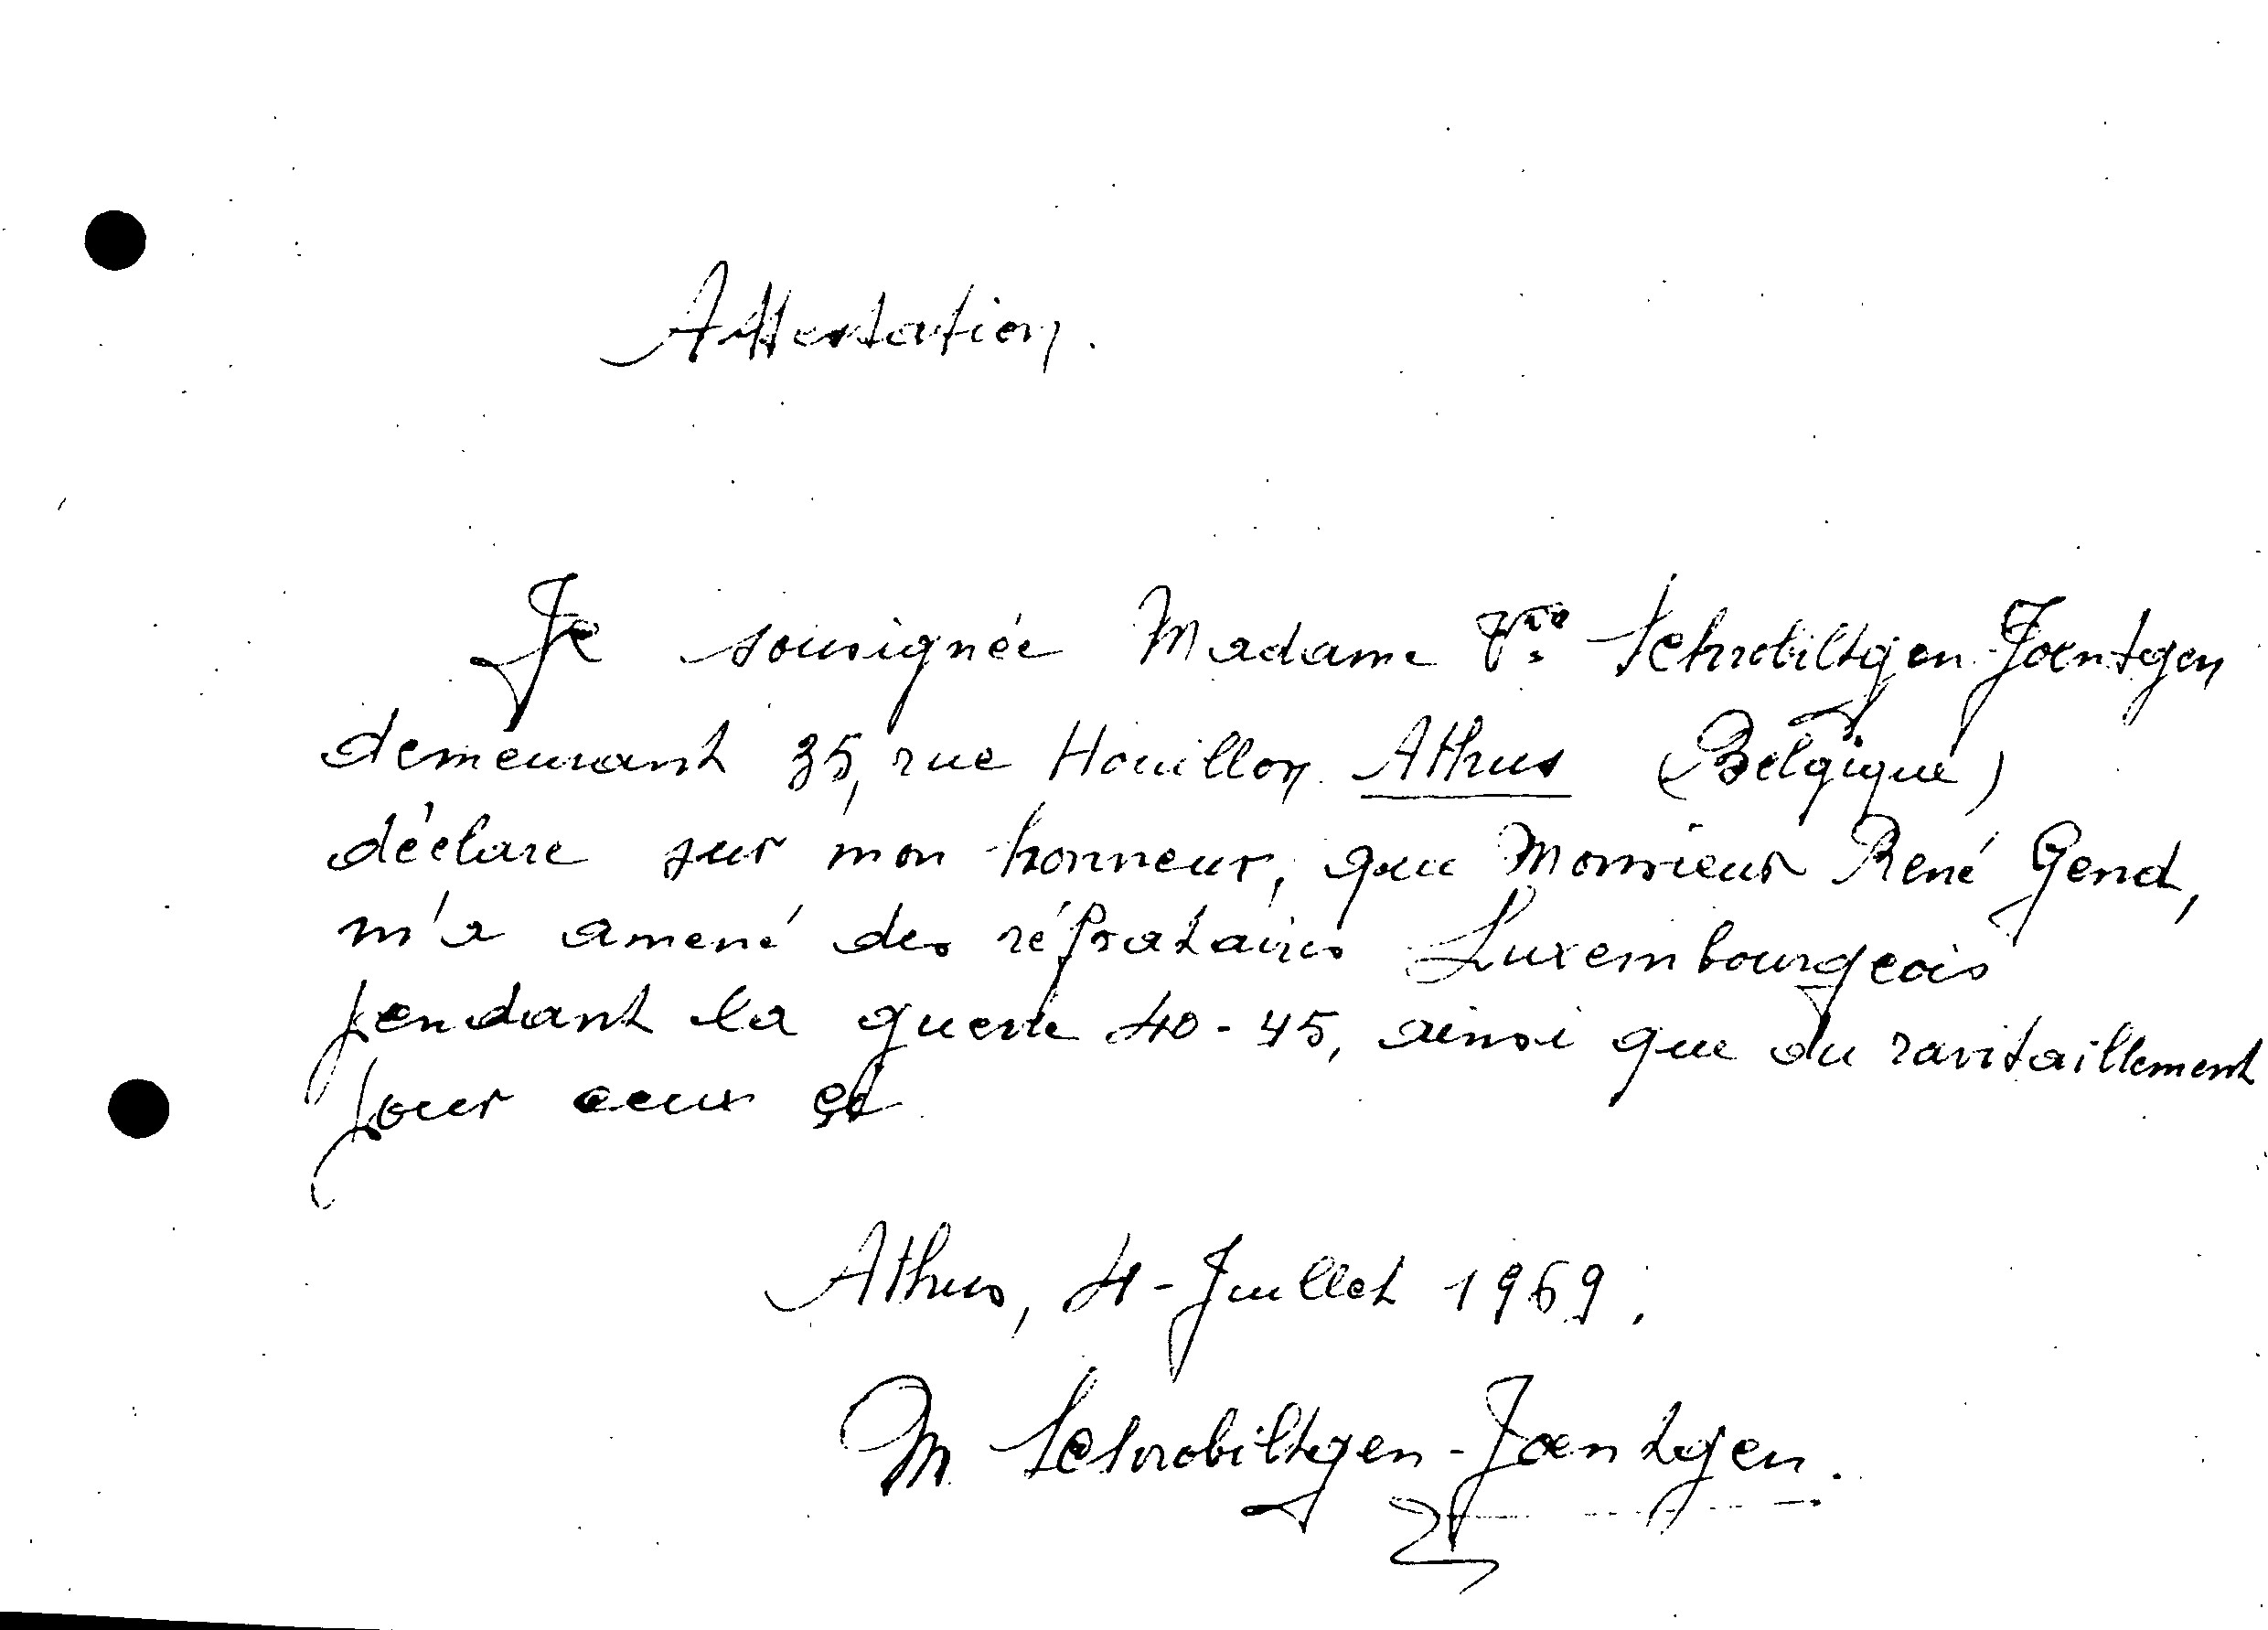 Attestation.
Je sousignée Madame Vve Schrobiltgen-Jaentgen
demeurant 35, rue Houillon Athus (Belgique)
déclare sur mon honneur, que Monsieur René Gend,
m'a amené des réfrataires Luxembourgeois
pendant la guerre 40-45, ainsi que du ravitaillement
pour ceux çi
Athus, 4-Juillet 1969.
M Schrobiltgen-Jaentgen.